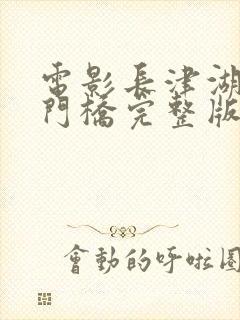 電影長津湖
門橋完整版
會動的呼啦圈